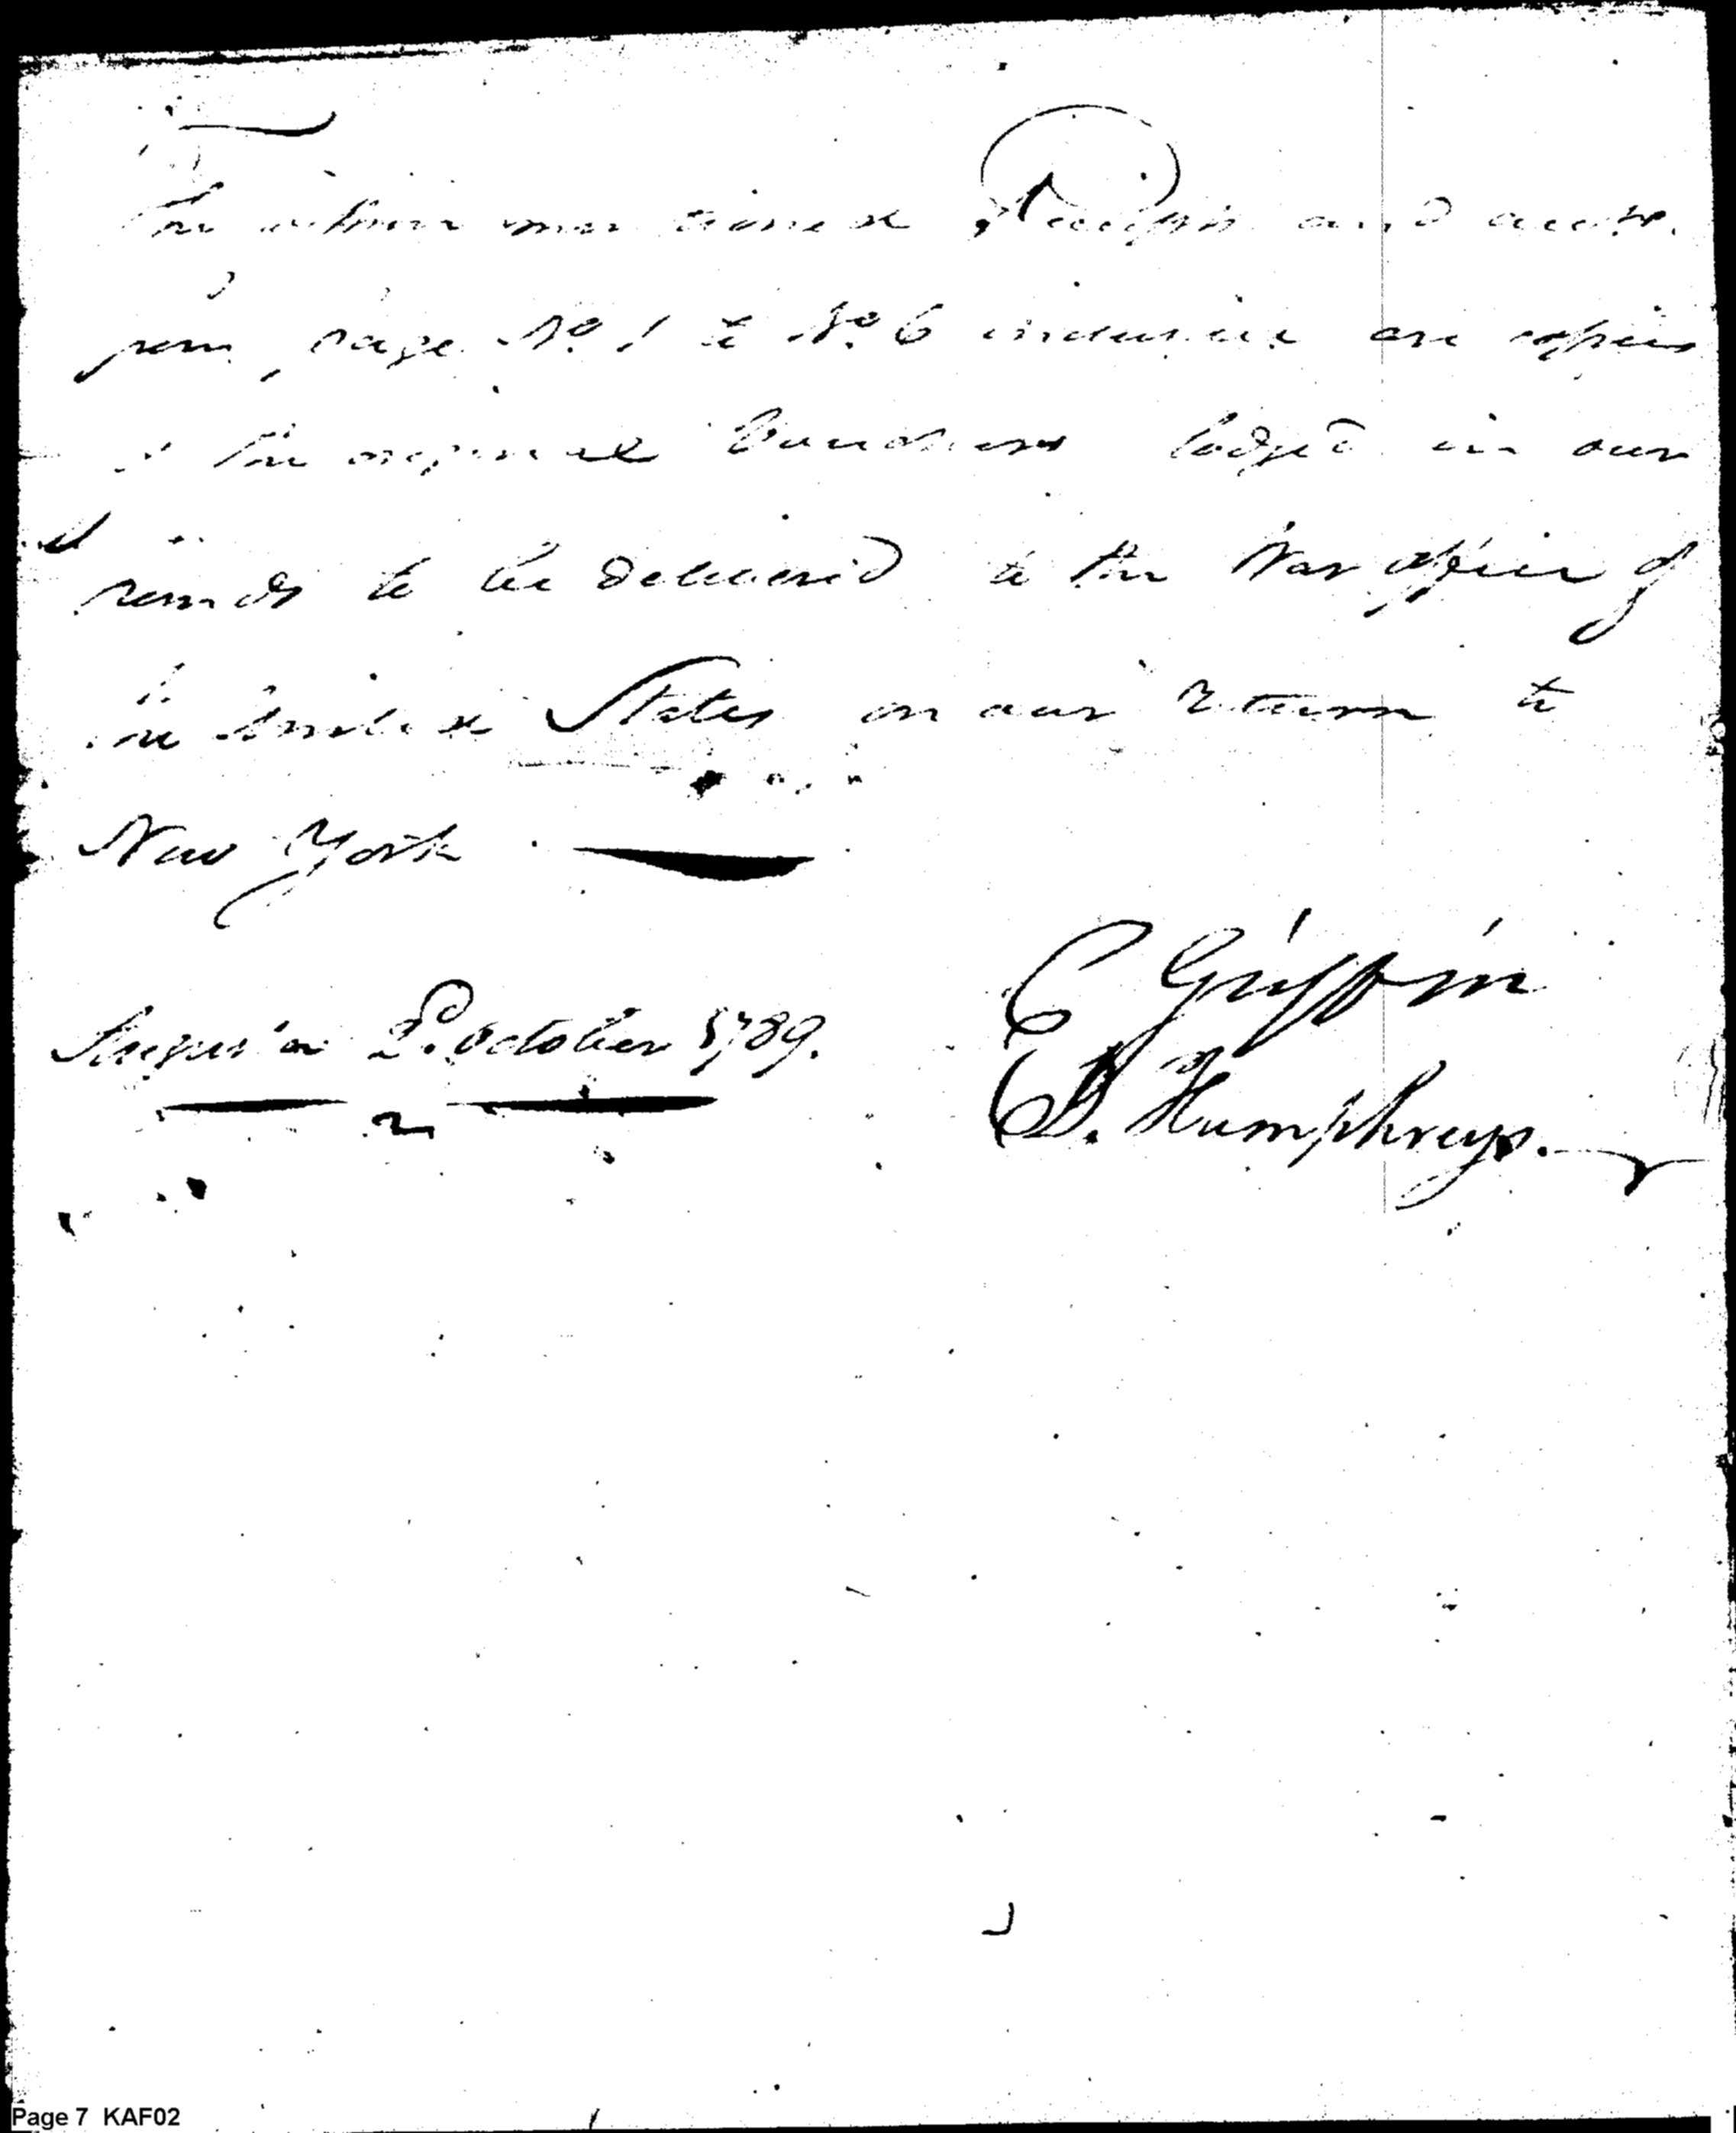 The within mentioned Receipts and accts.
from page No. 1 to No. 6 inclusive are copies
of the original Vouchers lodged in our
hands to be delivered to the War office of
the United States on our return to
New York
Augusta 2d. October 1789.
C Griffin
D. Humphreys.
Page 7 KAF02